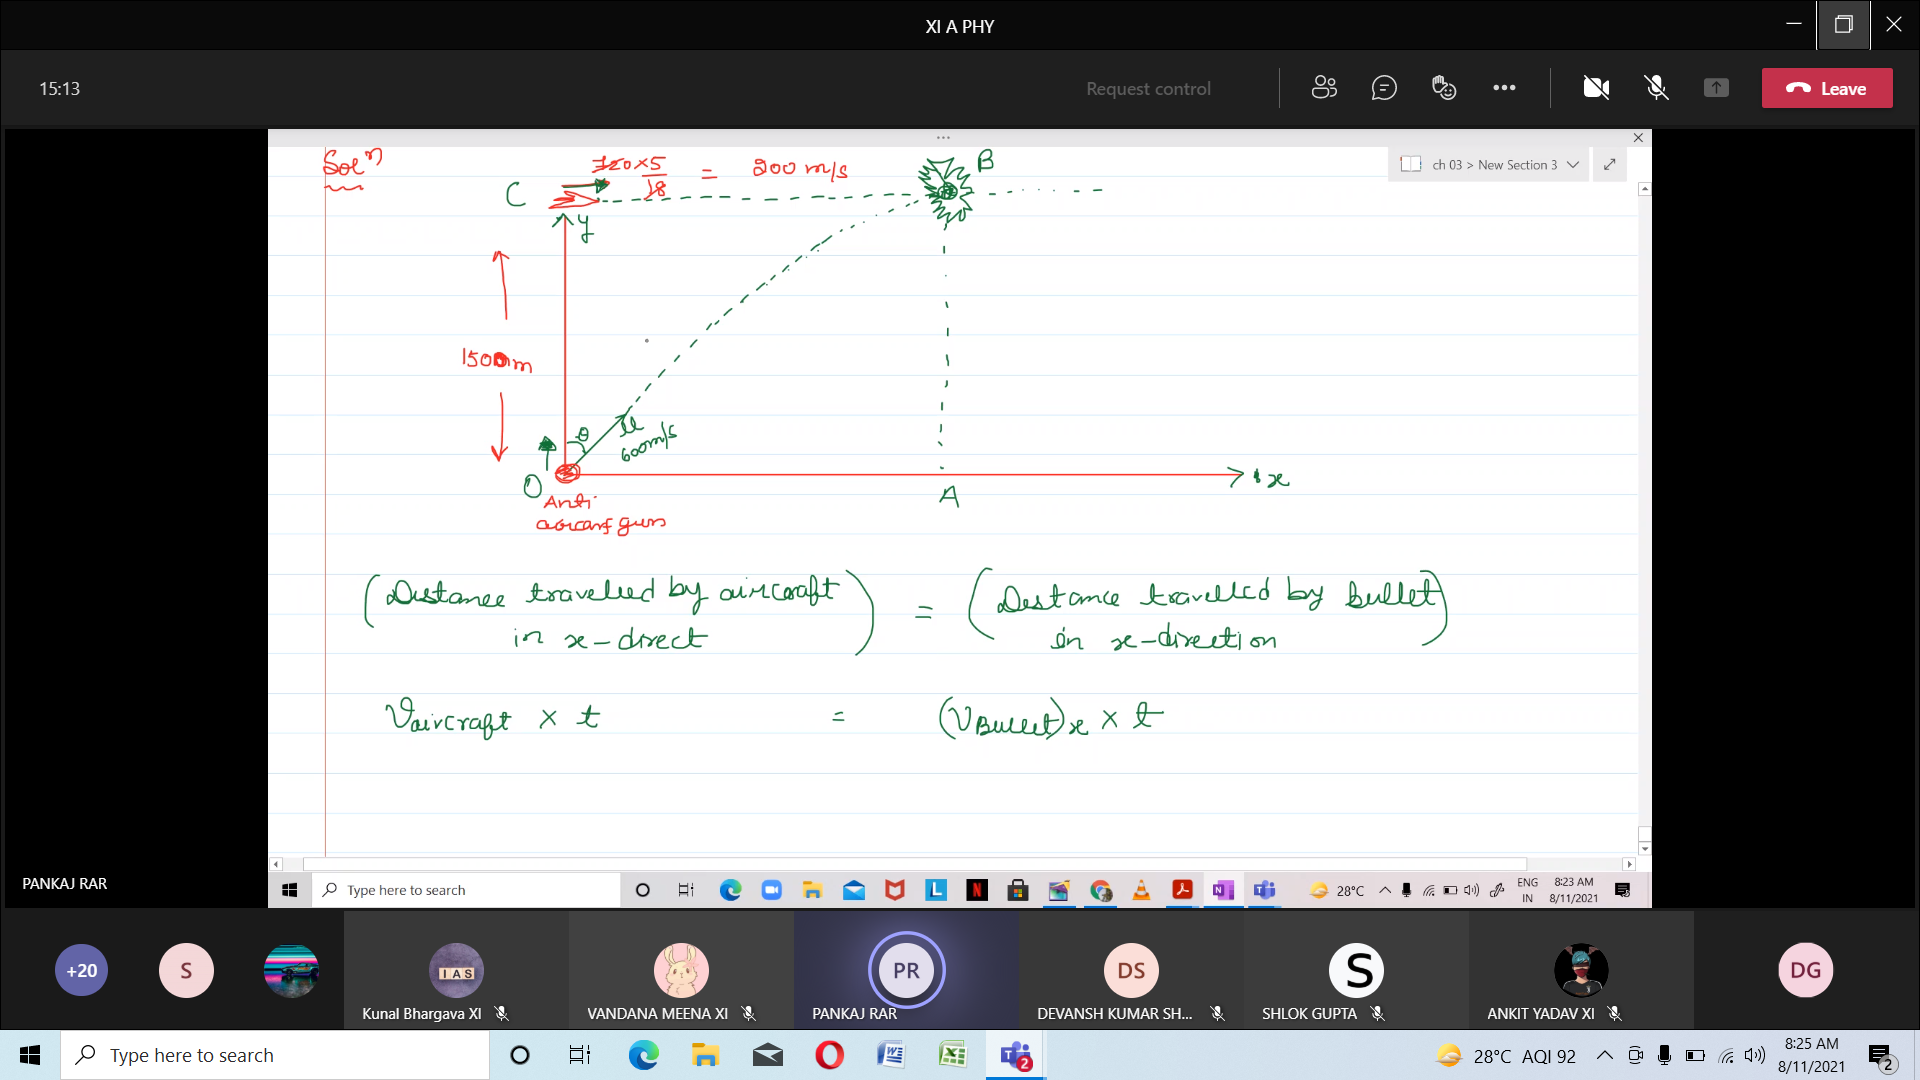 XI A PHY
15:13
Request control
Leave
ch 03 > New Section 3
Solⁿ
720×5
18
= 200 m/s
B
C
y
1500m
θ
u
600m/s
O
A
x
Anti
(Distance travelled by aircraft
in x-direct)
=
(Distance travelled by bullet
in x-direction)
Vaircraft × t = (VBullet)x × t
PANKAJ RAR
Type here to search
28°C
ENG
IN
8:23 AM
8/11/2021
+20
S
IAS
Kunal Bhargava XI
VANDANA MEENA XI
PR
PANKAJ RAR
DS
DEVANSH KUMAR SH...
S
SHLOK GUPTA
ANKIT YADAV XI
DG
Type here to search
2
28°C AQI 92
8:25 AM
8/11/2021
2